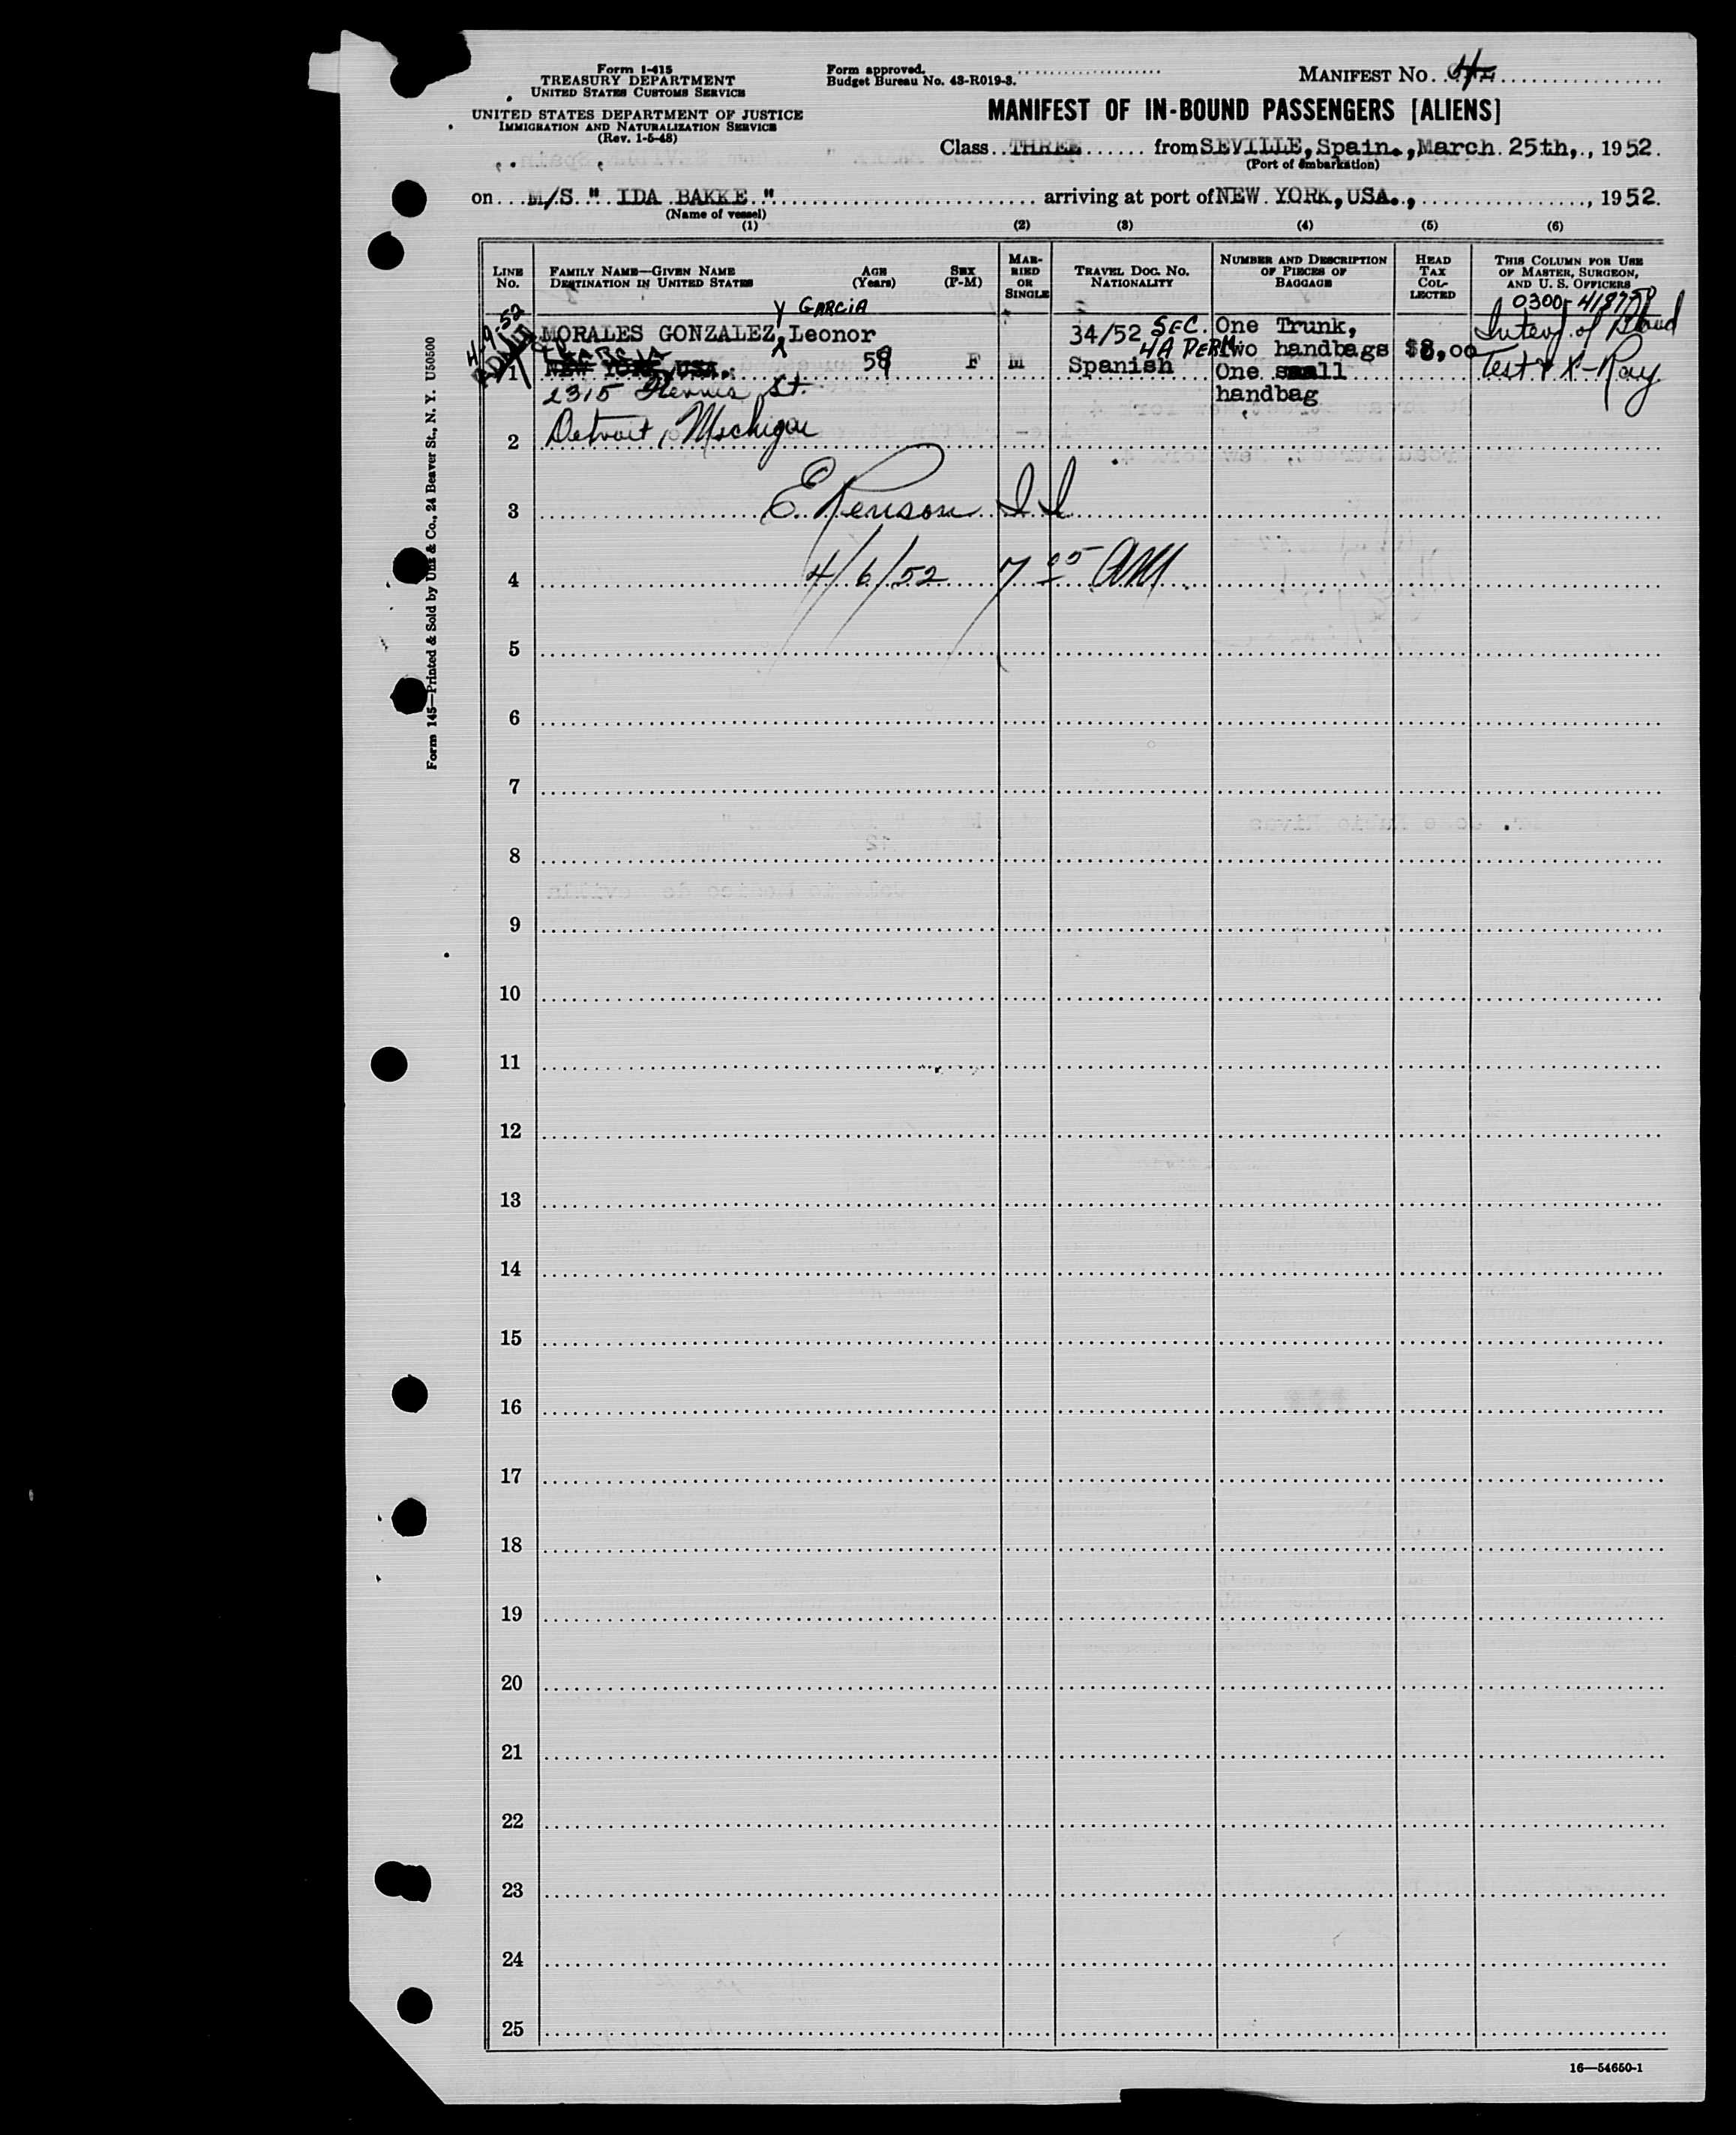 Form I-415
TREASURY DEPARTMENT
UNITED STATES CUSTOMS SERVICE
UNITED STATES DEPARTMENT OF JUSTICE
IMMIGRATION AND NATURALIZATION SERVICE
(Rev. 1-5-48)
Form approved.
Budget Bureau No. 43-R019-3.
MANIFEST NO.
MANIFEST OF IN-BOUND PASSENGERS [ALIENS]
Class THREE from SEVILLE, Spain., March 25th, , 1952.
(Port of embarkation)
on M/S. " IDA BAKKE " arriving at port of NEW YORK, USA., , 1952.
(Name of vessel)
(1) (2) (3) (4) (5) (6)
LINE NO.
FAMILY NAME—GIVEN NAME
DESTINATION IN UNITED STATES
AGE (Years)
SEX (F-M)
MARRIED OR SINGLE
TRAVEL DOC. NO. NATIONALITY
NUMBER AND DESCRIPTION OF PIECES OF BAGGAGE
HEAD TAX COLLECTED
THIS COLUMN FOR USE OF MASTER, SURGEON, AND U. S. OFFICERS
0300-
4-9-52
ADMIT
Y GARCIA
MORALES GONZALEZ, Leonor
34/52 SEC.
4A PERM
One Trunk,
Two handbags
$8,00
1
NEW YORK, USA.
F M Spanish
One small
handbag
Test & X-Ray
2315 St.
Detroit, Michigan
2
3
E. I I
4
4/6/52 7 25 AM
5
6
7
8
9
10
11
12
13
14
15
16
17
18
19
20
21
22
23
24
25
Form 145—Printed & Sold by Unz & Co., 24 Beaver St., N. Y. U50500
16—54650-1